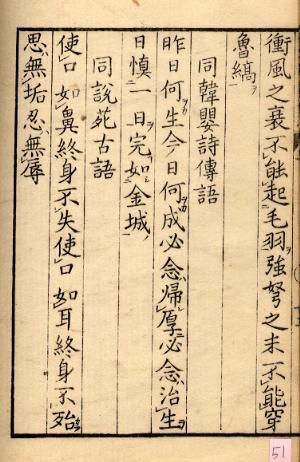 衝風之衰不能起毛羽強弩之末不能穿
魯縞
同韓嬰詩傳語
昨日何生今日何成必念歸厚必念治生
日慎一日完如金城
同說苑古語
使口如鼻終身不失使口如耳終身不殆
思無垢忍無辱
51